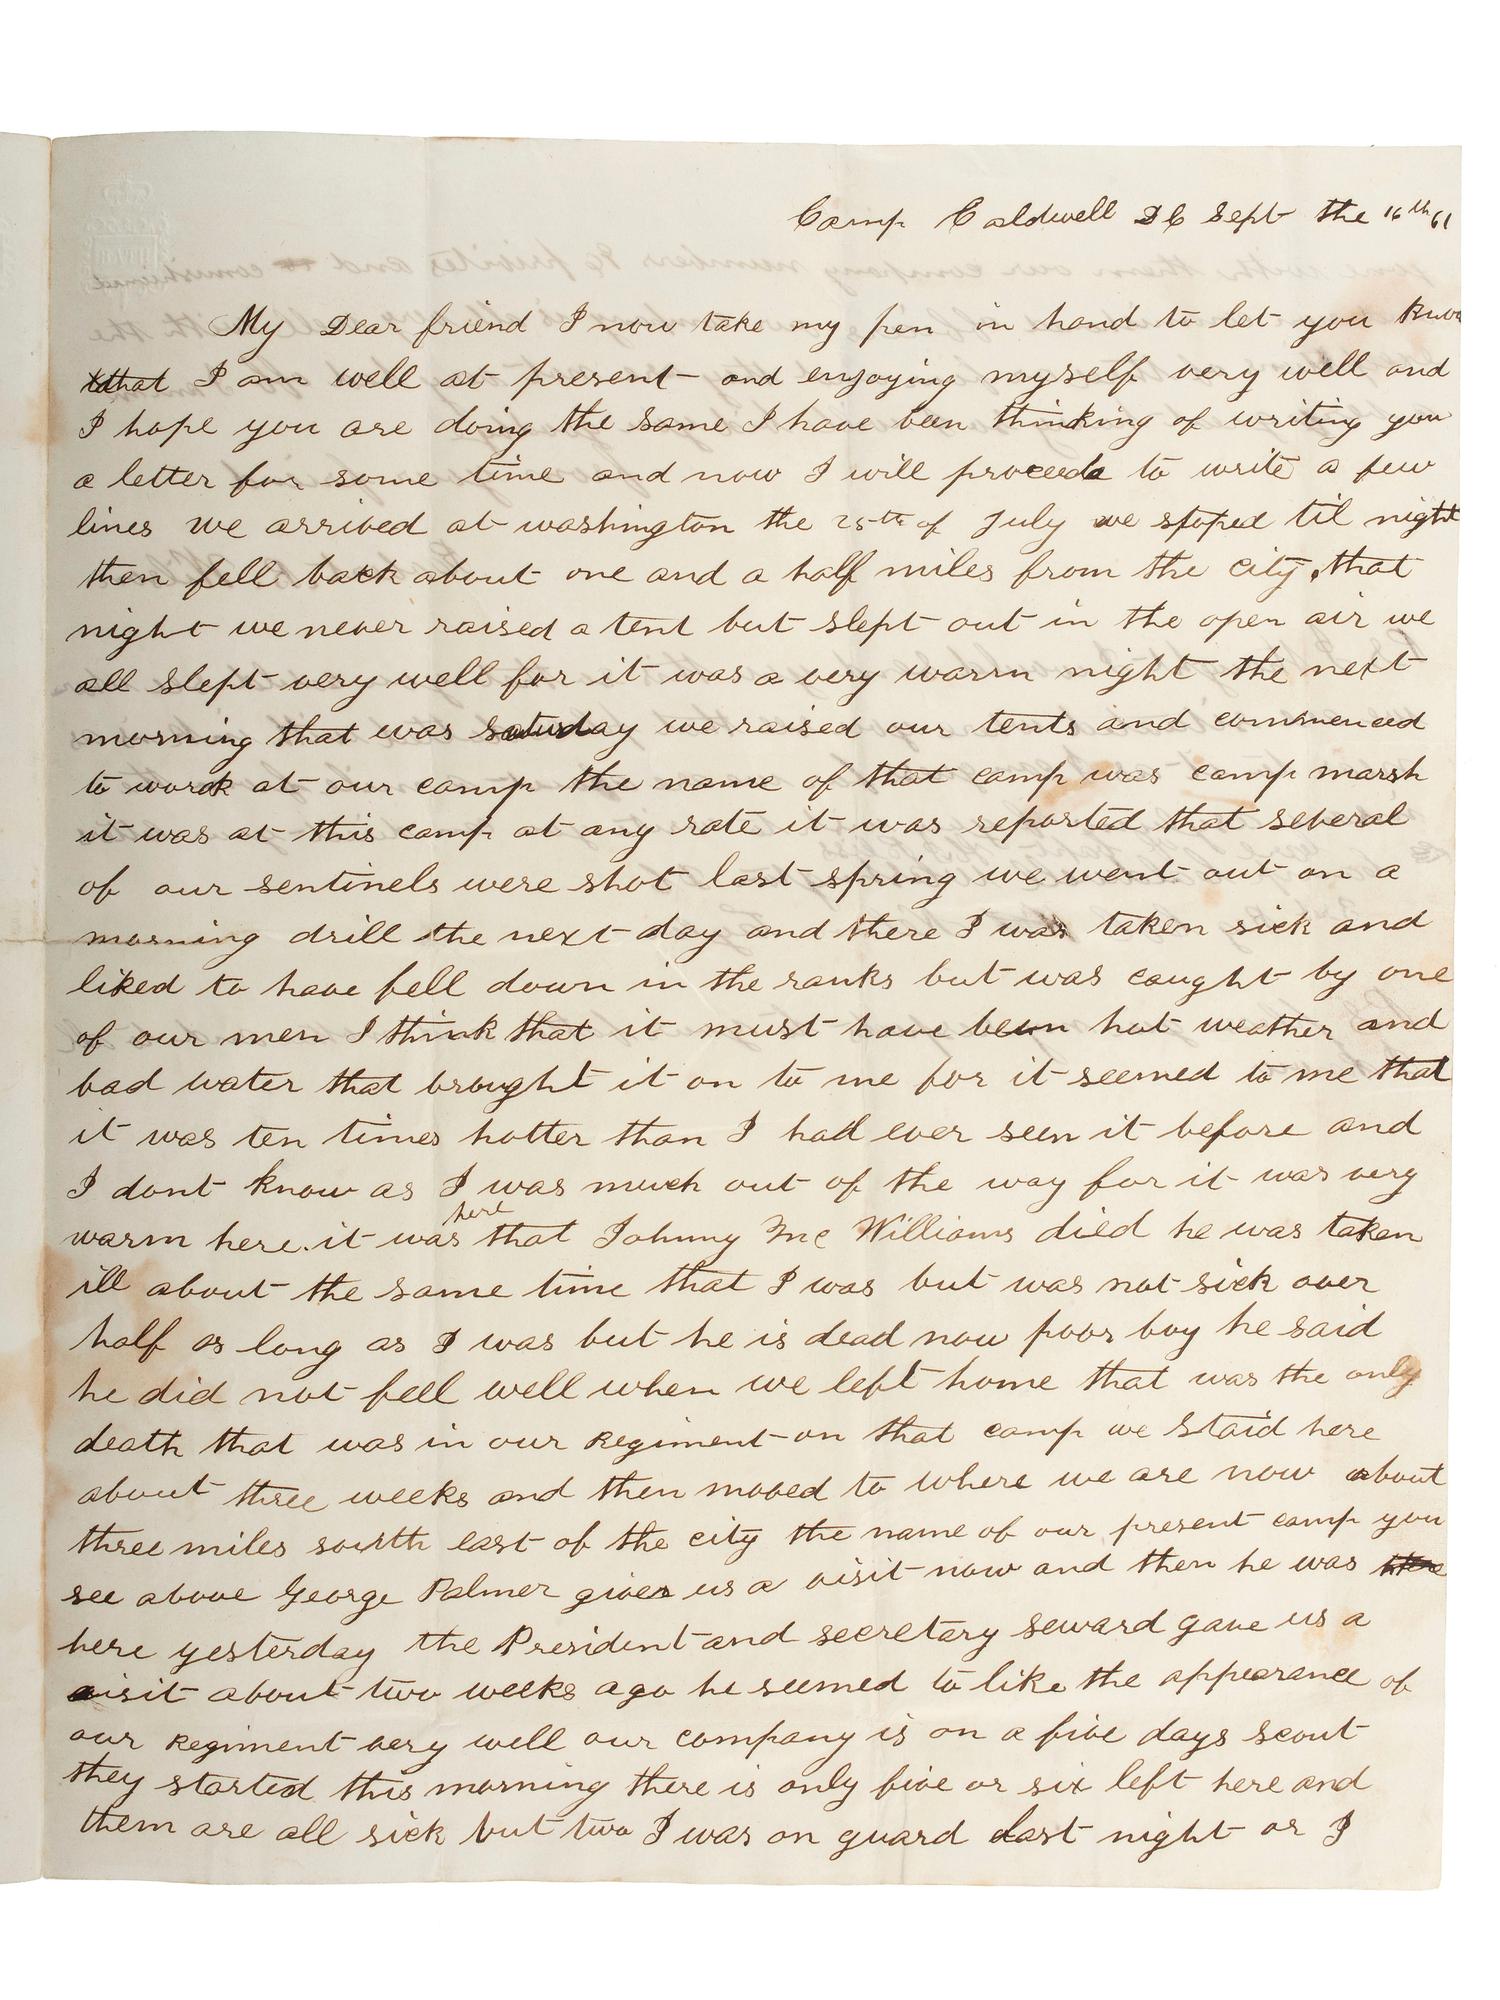 Camp Caldwell D C Sept the 16th 61
My Dear friend I now take my pen in hand to let you know
that I am well at present and enjoying myself very well and
I hope you are doing the same I have been thinking of writing you
a letter for some time and now I will proceed to write a few
lines we arrived at washington the 25th of July we stoped til night
then fell back about one and a half miles from the city, that
night we never raised a tent but slept out in the open air we
all slept very well for it was a very warm night the next
morning that was saturday we raised our tents and commenced
to work at our camp the name of that camp was camp marsh
it was at this camp at any rate it was reported that several
of our sentinels were shot last spring we went out on a
morning drill the next day and there I was taken sick and
liked to have fell down in the ranks but was caught by one
of our men I think that it must have been hot weather and
bad water that brought it on to me for it seemed to me that
it was ten times hotter than I had ever seen it before and
I dont know as I was much out of the way for it was very
warm here. it was here that Johnny Mc Williams died he was taken
ill about the same time that I was but was not sick over
half as long as I was but he is dead now poor boy he said
he did not fell well when we left home that was the only
death that was in our Regiment on that camp we staid here
about three weeks and then moved to where we are now about
three miles south east of the city the name of our present camp you
see above George Palmer gives us a visit now and then he was
here yesterday the President and secretary seward gave us a
visit about two weeks ago he seemed to like the appearance of
our Regiment very well our company is on a five days scout
they started this morning there is only five or six left here and
them are all sick but two I was on guard last night or I